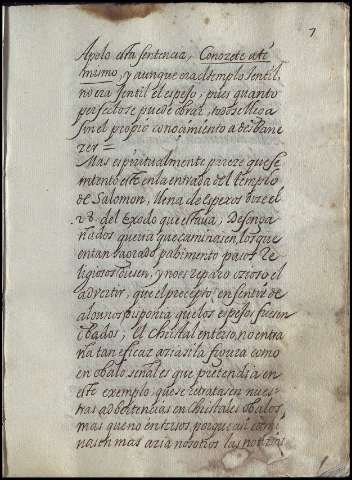 7
Apolo esta sentencia, Conozete a ti
mismo, y aunque era el templo Jentil,
no era Jentil el espejo, pues quanto
perfecto se puede obrar, todo se llega
sin el propio conocimiento a desbane
zer =
Mas espiritualmente pareze que se
intentó esto en la entrada del templo
de Salomon, llena de espejos dize el
28. del Exodo que estaua, Desenga
ñados queria que caminasen, los que
en tan sagrado pabimento pasos Re
ligiosos dusen, y no es reparo ozioso el
advertir, que el precepto, en sentir de
algunos disponia que los espejos fuesen
obados; El christal entero, no entra
ña tan eficaz asi a si la figura como
en obalo señales que pretendia en
este exemplo, que se retratasen nues
tras adbertencias en christales obalos,
mas que no enteros, porque asi cami
nasen mas azia nosotros las notizias